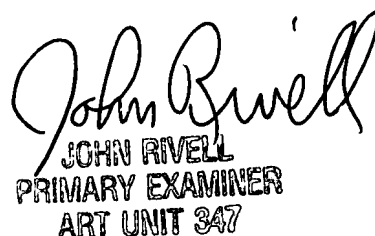 John Rivell
JOHN RIVELL
PRIMARY EXAMINER
ART UNIT 347